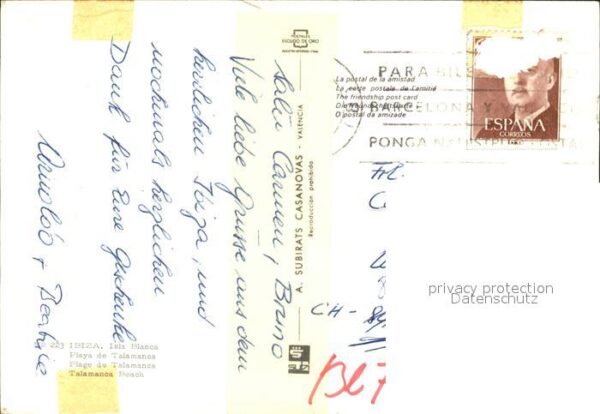 Salü Carmen, Bruno
Viele liebe Grüsse aus dem
herrlichen Ibiza, und
nochmals herzlichen
Dank für Eure Geschenke
Arnoldo + Beatrice
POSTALES
ESCUDO DE ORO
A. SUBIRATS CASANOVAS - VALENCIA
Reproducción prohibida
La postal de la amistad
La carte postale de l'amitié
The friendship post card
O postal da amizade
PARA
BARCELONA Y
PONGA
ESPAÑA
CORREOS
CH -
privacy protection
Datenschutz
223 IBIZA. Isla Blanca
Playa de Talamanca
Plage de Talamanca
Talamanca Beach